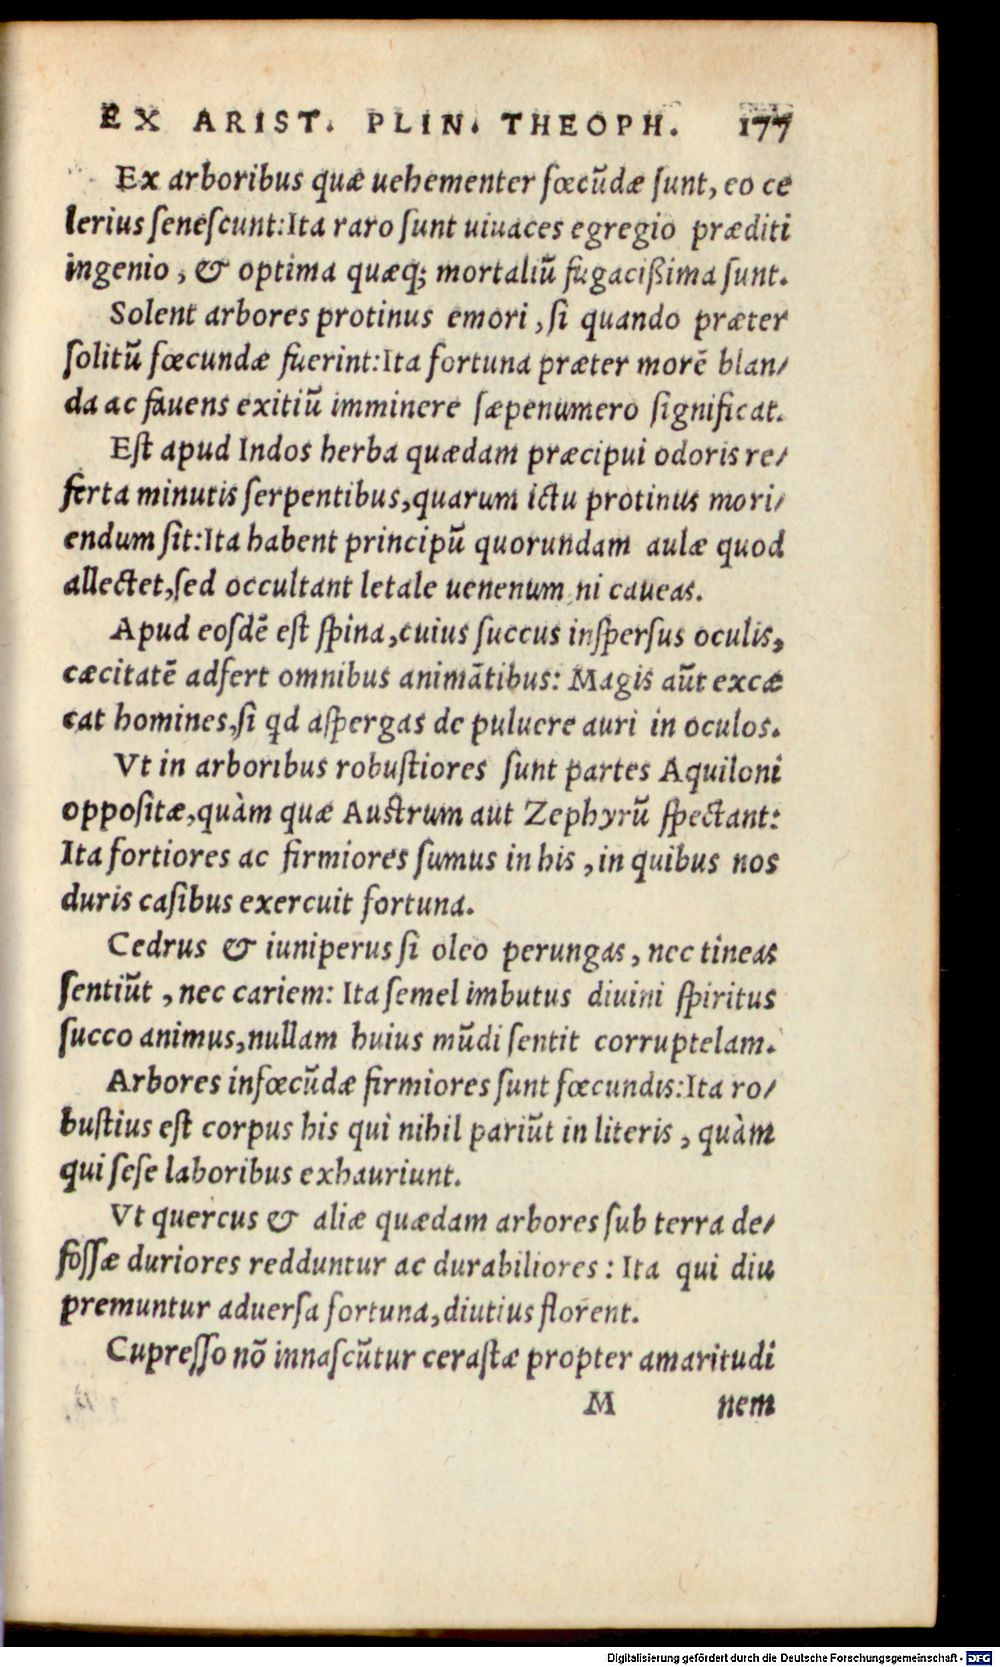 EX ARIST. PLIN. THEOPH. 177
Ex arboribus quæ uehementer fœcũdæ ſunt, eo ce
lerius ſeneſcunt: Ita raro ſunt uiuaces egregio præditi
ingenio, & optima quæq; mortaliũ fugacißima ſunt.
Solent arbores protinus emori, ſi quando præter
ſolitũ fœcundæ fuerint: Ita fortuna præter morẽ blan/
da ac fauens exitiũ imminere ſæpenumero ſignificat.
Eſt apud Indos herba quædam præcipui odoris re/
ferta minutis ſerpentibus, quarum ictu protinus mori/
endum ſit: Ita habent principũ quorundam aulæ quod
allectet, ſed occultant letale uenenum ni caueas.
Apud eoſdẽ eſt ſpina, cuius ſuccus inſperſus oculis,
cæcitatẽ adfert omnibus animãtibus: Magis aũt excæ
cat homines, ſi qd aſpergas de puluere auri in oculos.
Vt in arboribus robuſtiores ſunt partes Aquiloni
oppoſitæ, quàm quæ Auſtrum aut Zephyrũ ſpectant:
Ita fortiores ac firmiores ſumus in his, in quibus nos
duris caſibus exercuit fortuna.
Cedrus & iuniperus ſi oleo perungas, nec tineas
ſentiũt, nec cariem: Ita ſemel imbutus diuini ſpiritus
ſucco animus, nullam huius mũdi ſentit corruptelam.
Arbores infœcũdæ firmiores ſunt fœcundis: Ita ro/
buſtius eſt corpus his qui nihil pariũt in literis, quàm
qui ſeſe laboribus exhauriunt.
Vt quercus & aliæ quædam arbores ſub terra de/
foſſæ duriores redduntur ac durabiliores: Ita qui diu
premuntur aduerſa fortuna, diutius florent.
Cupreſſo nõ innaſcũtur ceraſtæ propter amaritudi
M nem
Digitalisierung gefördert durch die Deutsche Forschungsgemeinschaft - DFG